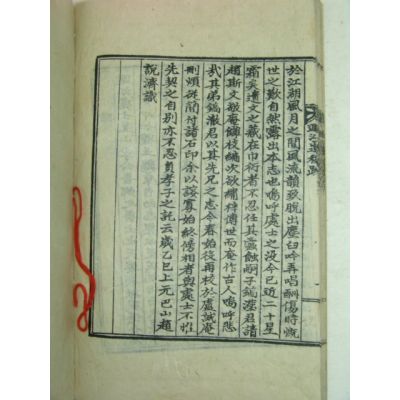 遺稿跋
於江湖風月之間風流韻致脫出塵臼吟弄唱酬傷時慨
世之歎自然露出本志也嗚呼處士之沒今已近二十星
霜矣遺文之藏在巾衍者不忍任其蠹蝕嗣子鎬瀅君請
趙斯文敬庵鏞枝編次欲繡梓傳世而庵作古人嗚呼悲
哉其弟鎬澈君以其先兄之志今春始役再校於處誠庵
刪煩從簡付諸石印余以謏寡始終傍相者與處士不惟
先契之自別亦不忍負孝子之託云歲乙巳上元巴山趙
說濟識